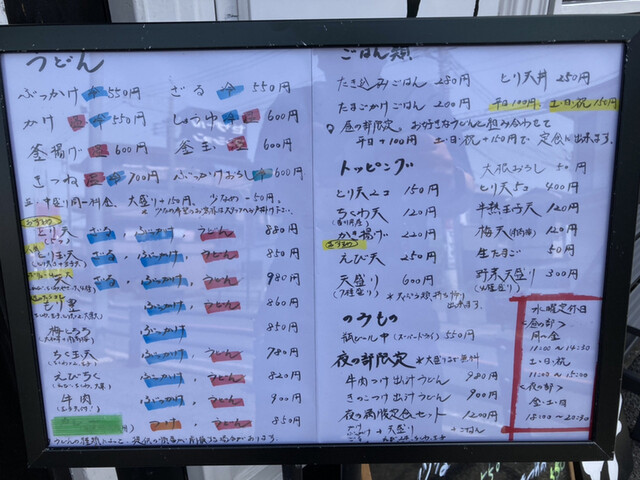 うどん
ぶっかけ 冷 550円 ざる 冷 550円
かけ 温 冷 550円 しょうゆ 冷 温 600円
釜揚げ 温 600円 釜玉 温 600円
きつね 温 冷 700円 ぶっかけおろし 冷 600円
並・中盛り同一料金、大盛り+150円、少なめ-50円。
とり天 ざる ぶっかけ うどん 880円
(5つ)
とり玉天 ざる ぶっかけ うどん 850円
ざる ぶっかけ うどん 980円
ぶっかけ うどん 860円
梅とろろ ぶっかけ 850円
ちく玉天 ぶっかけ うどん 780円
えびちく ぶっかけ うどん 820円
牛肉 ぶっかけ うどん 900円
かけ うどん 850円
ごはん類
たき込みごはん 250円 とり天丼 250円
たまごかけごはん 200円 平日100円、土・日・祝150円
昼の部限定、お好きなうどんと組み合わせて
平日+100円 土・日・祝+150円で定食に出来ます。
トッピング 大根おろし 50円
とり天2コ 150円 とり天5コ 400円
ちくわ天 120円 半熟玉ウ天 120円
かき揚げ 220円 梅天 120円
えび天 250円 生たまご 50円
天盛り 600円 野菜天盛り 300円
のみもの
瓶ビール中(スーパードライ) 550円
夜の部限定 *大盛りまで無料
牛肉つけ出汁うどん 980円
きのこつけ出汁うどん 900円
夜の部限定セット 1200円
ぶっかけ + 天盛り + ごはん
水曜定休日
<昼の部>
月〜金
11:00〜14:30
土・日・祝
11:00〜15:00
<夜の部>
金・土・日
18:00〜20:30